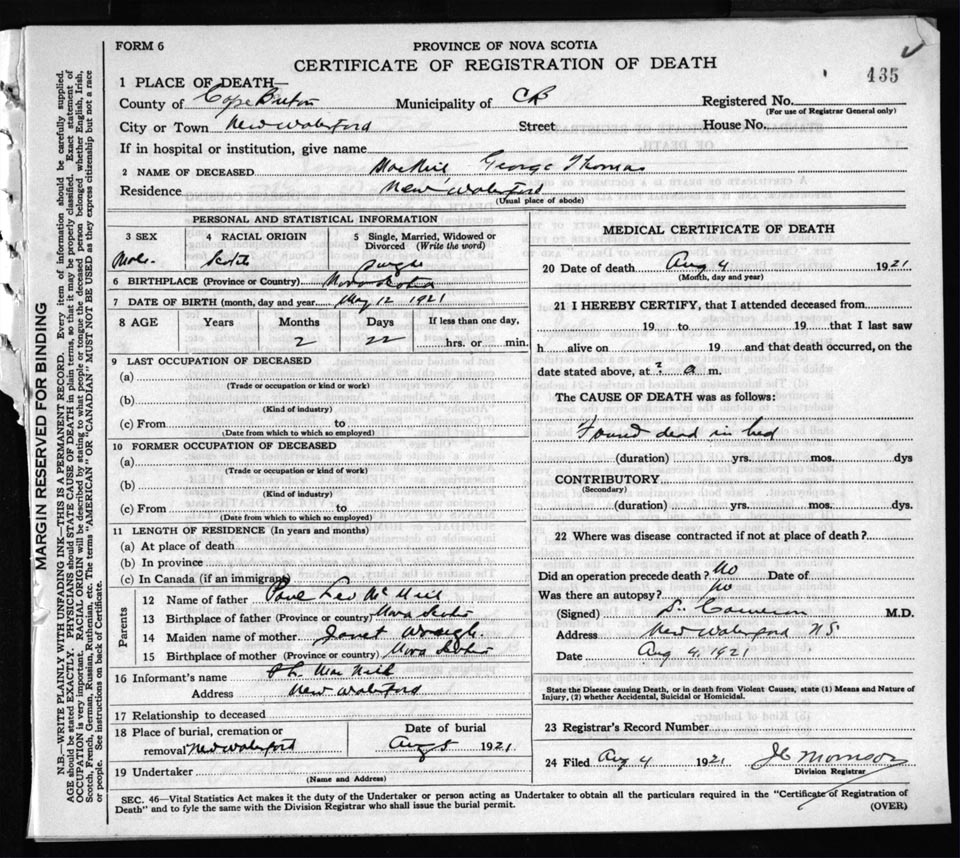 FORM 6
PROVINCE OF NOVA SCOTIA
CERTIFICATE OF REGISTRATION OF DEATH
435
1 PLACE OF DEATH—
County of Cape Breton Municipality of CB Registered No.
(For use of Registrar General only)
City or Town New Waterford Street House No.
If in hospital or institution, give name
2 NAME OF DECEASED MacNeil George Thomas
Residence New Waterford
(Usual place of abode)
PERSONAL AND STATISTICAL INFORMATION
3 SEX 4 RACIAL ORIGIN 5 Single, Married, Widowed or Divorced (Write the word)
Male. Scotch Single
6 BIRTHPLACE (Province or Country) Nova Scotia
7 DATE OF BIRTH (month, day and year) May 12 1921
8 AGE Years Months Days If less than one day,
2 22 hrs. or min.
9 LAST OCCUPATION OF DECEASED
(a)
(Trade or occupation or kind or work)
(b)
(Kind of industry)
(c) From to
(Date from which to which so employed)
10 FORMER OCCUPATION OF DECEASED
(a)
(Trade or occupation or kind of work)
(b)
(Kind of industry)
(c) From to
(Date from which to which so employed)
11 LENGTH OF RESIDENCE (In years and months)
(a) At place of death
(b) In province
(c) In Canada (if an immigrant)
Parents
12 Name of father Paul Leo McNeil
13 Birthplace of father (Province or country) Nova Scotia
14 Maiden name of mother Janet
15 Birthplace of mother (Province or country) Nova Scotia
16 Informant's name MacNeil
Address New Waterford
17 Relationship to deceased
18 Place of burial, cremation or Date of burial
removal New Waterford Aug 5 1921
19 Undertaker
(Name and Address)
MEDICAL CERTIFICATE OF DEATH
20 Date of death Aug 4 1921
(Month, day and year)
21 I HEREBY CERTIFY, that I attended deceased from
19 to 19 that I last saw
h alive on 19 and that death occurred, on the
date stated above, at ? a m.
The CAUSE OF DEATH was as follows:
Found dead in bed
(duration) yrs. mos. dys
CONTRIBUTORY
(Secondary)
(duration) yrs. mos. dys.
22 Where was disease contracted if not at place of death?
Did an operation precede death? No Date of
Was there an autopsy? No
(Signed) S. Cameron M.D.
Address New Waterford N.S.
Date Aug 4, 1921
State the Disease causing Death, or in death from Violent Causes, state (1) Means and Nature of
Injury, (2) whether Accidental, Suicidal or Homicidal.
23 Registrar's Record Number
24 Filed Aug 4 1921 Morrison
Division Registrar
SEC. 46—Vital Statistics Act makes it the duty of the Undertaker or person acting as Undertaker to obtain all the particulars required in the "Certificate of Registration of
Death" and to fyle the same with the Division Registrar who shall issue the burial permit.
(OVER)
MARGIN RESERVED FOR BINDING
N.B.—WRITE PLAINLY WITH UNFADING INK—THIS IS A PERMANENT RECORD. Every item of information should be carefully supplied.
AGE should be stated EXACTLY. PHYSICIANS should STATE CAUSE OF DEATH in plain terms, so that it may be properly classified. Exact statement of
OCCUPATION is very important. RACIAL ORIGIN will be described by stating to what people or tongue the deceased person belonged whether English, Irish,
Scotch, French, German, Russian, Ruthenian, etc. The terms "AMERICAN" OR "CANADIAN" MUST NOT BE USED as they express citizenship but not a race
or people. See instructions on back of Certificate.